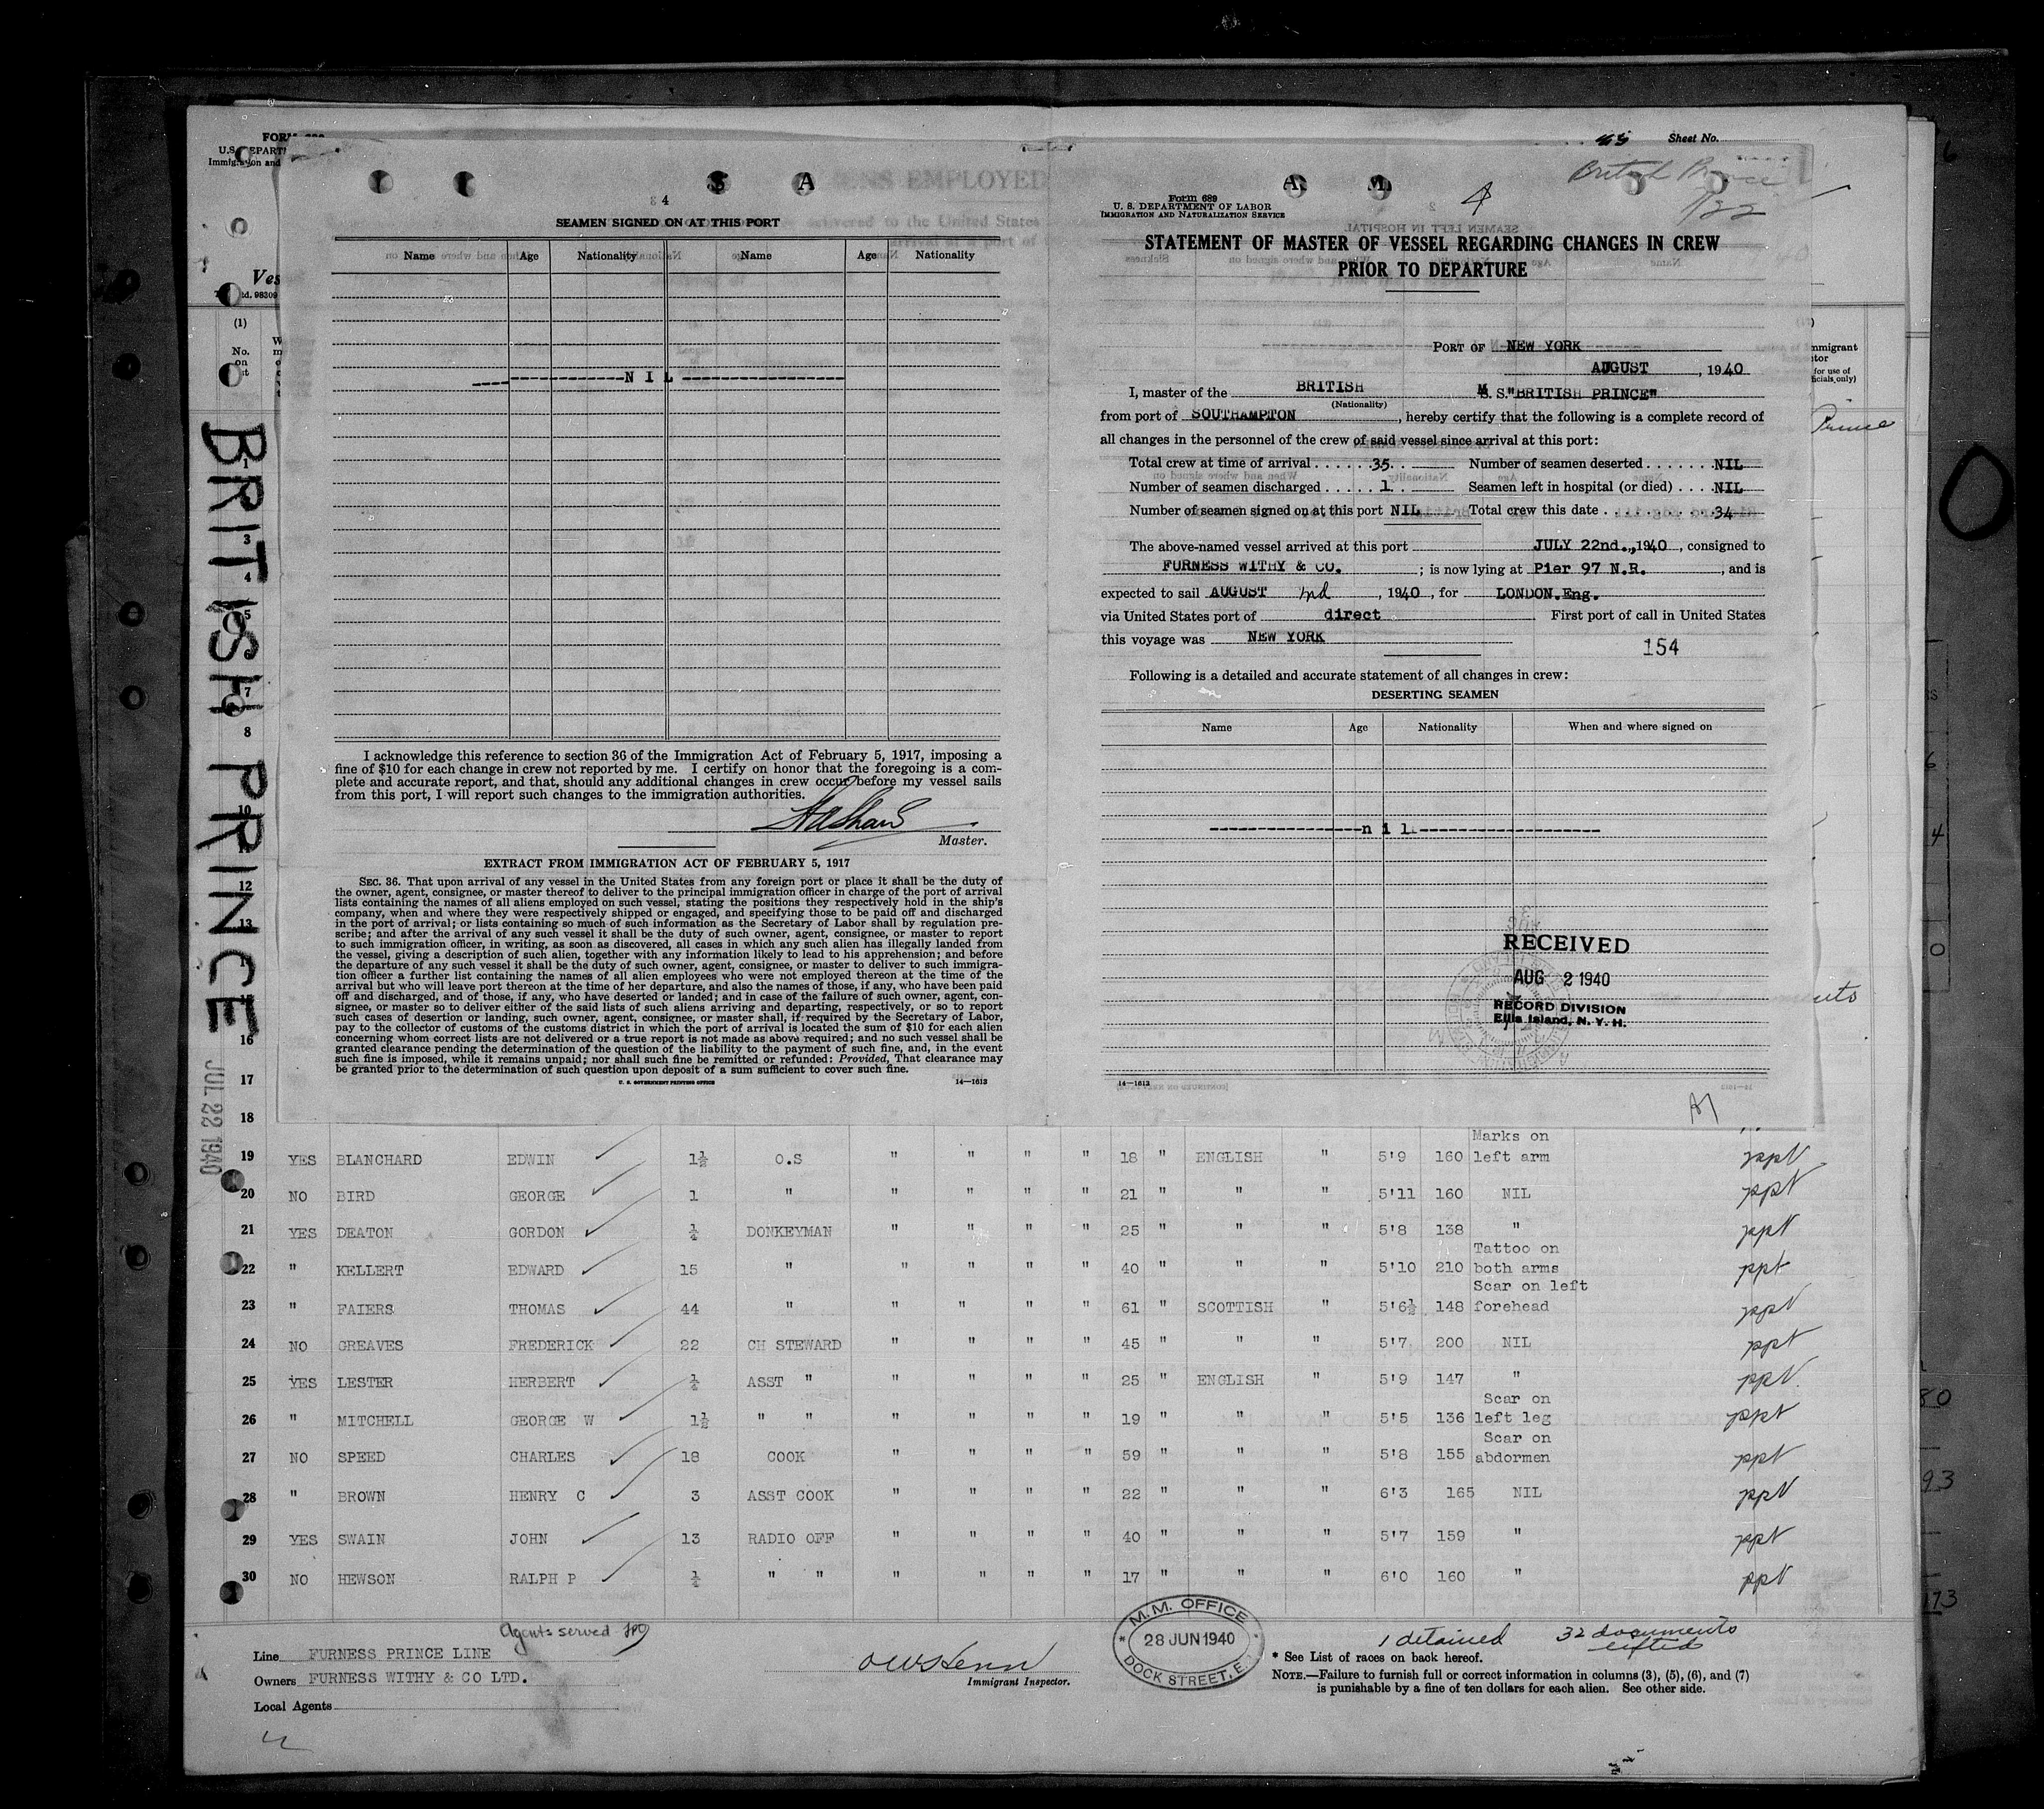 FORM 689
U.S. DEPART
Immigration and
Sheet No.
S A
A. M.
4
SEAMEN SIGNED ON AT THIS PORT
Name Age Nationality Name Age Nationality
N I L
I acknowledge this reference to section 36 of the Immigration Act of February 5, 1917, imposing a
fine of $10 for each change in crew not reported by me. I certify on honor that the foregoing is a com-
plete and accurate report, and that, should any additional changes in crew occur before my vessel sails
from this port, I will report such changes to the immigration authorities.
Master.
EXTRACT FROM IMMIGRATION ACT OF FEBRUARY 5, 1917
SEC. 36. That upon arrival of any vessel in the United States from any foreign port or place it shall be the duty of
the owner, agent, consignee, or master thereof to deliver to the principal immigration officer in charge of the port of arrival
lists containing the names of all aliens employed on such vessel, stating the positions they respectively hold in the ship's
company, when and where they were respectively shipped or engaged, and specifying those to be paid off and discharged
in the port of arrival; or lists containing so much of such information as the Secretary of Labor shall by regulation pre-
scribe; and after the arrival of any such vessel it shall be the duty of such owner, agent, consignee, or master to report
to such immigration officer, in writing, as soon as discovered, all cases in which any such alien has illegally landed from
the vessel, giving a description of such alien, together with any information likely to lead to his apprehension; and before
the departure of any such vessel it shall be the duty of such owner, agent, consignee, or master to deliver to such immigra-
tion officer a further list containing the names of all alien employees who were not employed thereon at the time of the
arrival but who will leave port thereon at the time of her departure, and also the names of those, if any, who have been paid
off and discharged, and of those, if any, who have deserted or landed; and in case of the failure of such owner, agent, con-
signee, or master so to deliver either of the said lists of such aliens arriving and departing, respectively, or so to report
such cases of desertion or landing, such owner, agent, consignee, or master shall, if required by the Secretary of Labor,
pay to the collector of customs of the customs district in which the port of arrival is located the sum of $10 for each alien
concerning whom correct lists are not delivered or a true report is not made as above required; and no such vessel shall be
granted clearance pending the determination of the question of the liability to the payment of such fine, and, in the event
such fine is imposed, while it remains unpaid; nor shall such fine be remitted or refunded: Provided, That clearance may
be granted prior to the determination of such question upon deposit of a sum sufficient to cover such fine.
U. S. GOVERNMENT PRINTING OFFICE 14—1613
Form 689
U. S. DEPARTMENT OF LABOR
IMMIGRATION AND NATURALIZATION SERVICE
4
British Prince
7/22
STATEMENT OF MASTER OF VESSEL REGARDING CHANGES IN CREW
PRIOR TO DEPARTURE
PORT OF NEW YORK
AUGUST , 1940
I, master of the BRITISH M S. S. "BRITISH PRINCE"
(Nationality)
from port of SOUTHAMPTON , hereby certify that the following is a complete record of
all changes in the personnel of the crew of said vessel since arrival at this port:
Total crew at time of arrival . . . . . . 35. Number of seamen deserted . . . . . . . NIL
Number of seamen discharged . . . . . 1 Seamen left in hospital (or died) . . . . NIL
Number of seamen signed on at this port NIL Total crew this date . . . . . . . . 34
The above-named vessel arrived at this port JULY 22nd., 1940 , consigned to
FURNESS WITHY & CO. ; is now lying at Pier 97 N.R. , and is
expected to sail AUGUST 2nd , 1940 , for LONDON.Eng.
via United States port of direct First port of call in United States
this voyage was NEW YORK
154
Following is a detailed and accurate statement of all changes in crew:
DESERTING SEAMEN
Name Age Nationality When and where signed on
n i l
RECEIVED
AUG 2 1940
RECORD DIVISION
Ellis Island, N. Y. H.
14—1613
BRITISH PRINCE
JUL 22 1940
(1)
No.
on
Prince
19 YES BLANCHARD EDWIN 1½ O.S " " " " 18 " ENGLISH " 5'9 160 Marks on left arm ppt
20 NO BIRD GEORGE 1 " " " " " 21 " " " 5'11 160 NIL ppt
21 YES DEATON GORDON ¼ DONKEYMAN " " " " 25 " " " 5'8 138 " ppt
22 " KELLERT EDWARD 15 " " " " " 40 " " " 5'10 210 Tattoo on both arms ppt
23 " FAIERS THOMAS 44 " " " " " 61 " SCOTTISH " 5'6½ 148 Scar on left forehead ppt
24 NO GREAVES FREDERICK 22 CH STEWARD " " " " 45 " " " 5'7 200 NIL ppt
25 YES LESTER HERBERT ¼ ASST " " " " " 25 " ENGLISH " 5'9 147 " ppt
26 " MITCHELL GEORGE W 1½ " " " " " " 19 " " " 5'5 136 Scar on left leg ppt
27 NO SPEED CHARLES 18 COOK " " " " 59 " " " 5'8 155 Scar on abdormen ppt
28 " BROWN HENRY C 3 ASST COOK " " " " 22 " " " 6'3 165 NIL ppt
29 YES SWAIN JOHN 13 RADIO OFF " " " " 40 " " " 5'7 159 " ppt
30 NO HEWSON RALPH P ¼ " " " " " " 17 " " " 6'0 160 " ppt
Agents served
Line FURNESS PRINCE LINE
Owners FURNESS WITHY & CO LTD.
Local Agents
Immigrant Inspector.
M.M. OFFICE
28 JUN 1940
DOCK STREET, E.
1 detained 32 documents lifted
* See List of races on back hereof.
NOTE.—Failure to furnish full or correct information in columns (3), (5), (6), and (7)
is punishable by a fine of ten dollars for each alien. See other side.